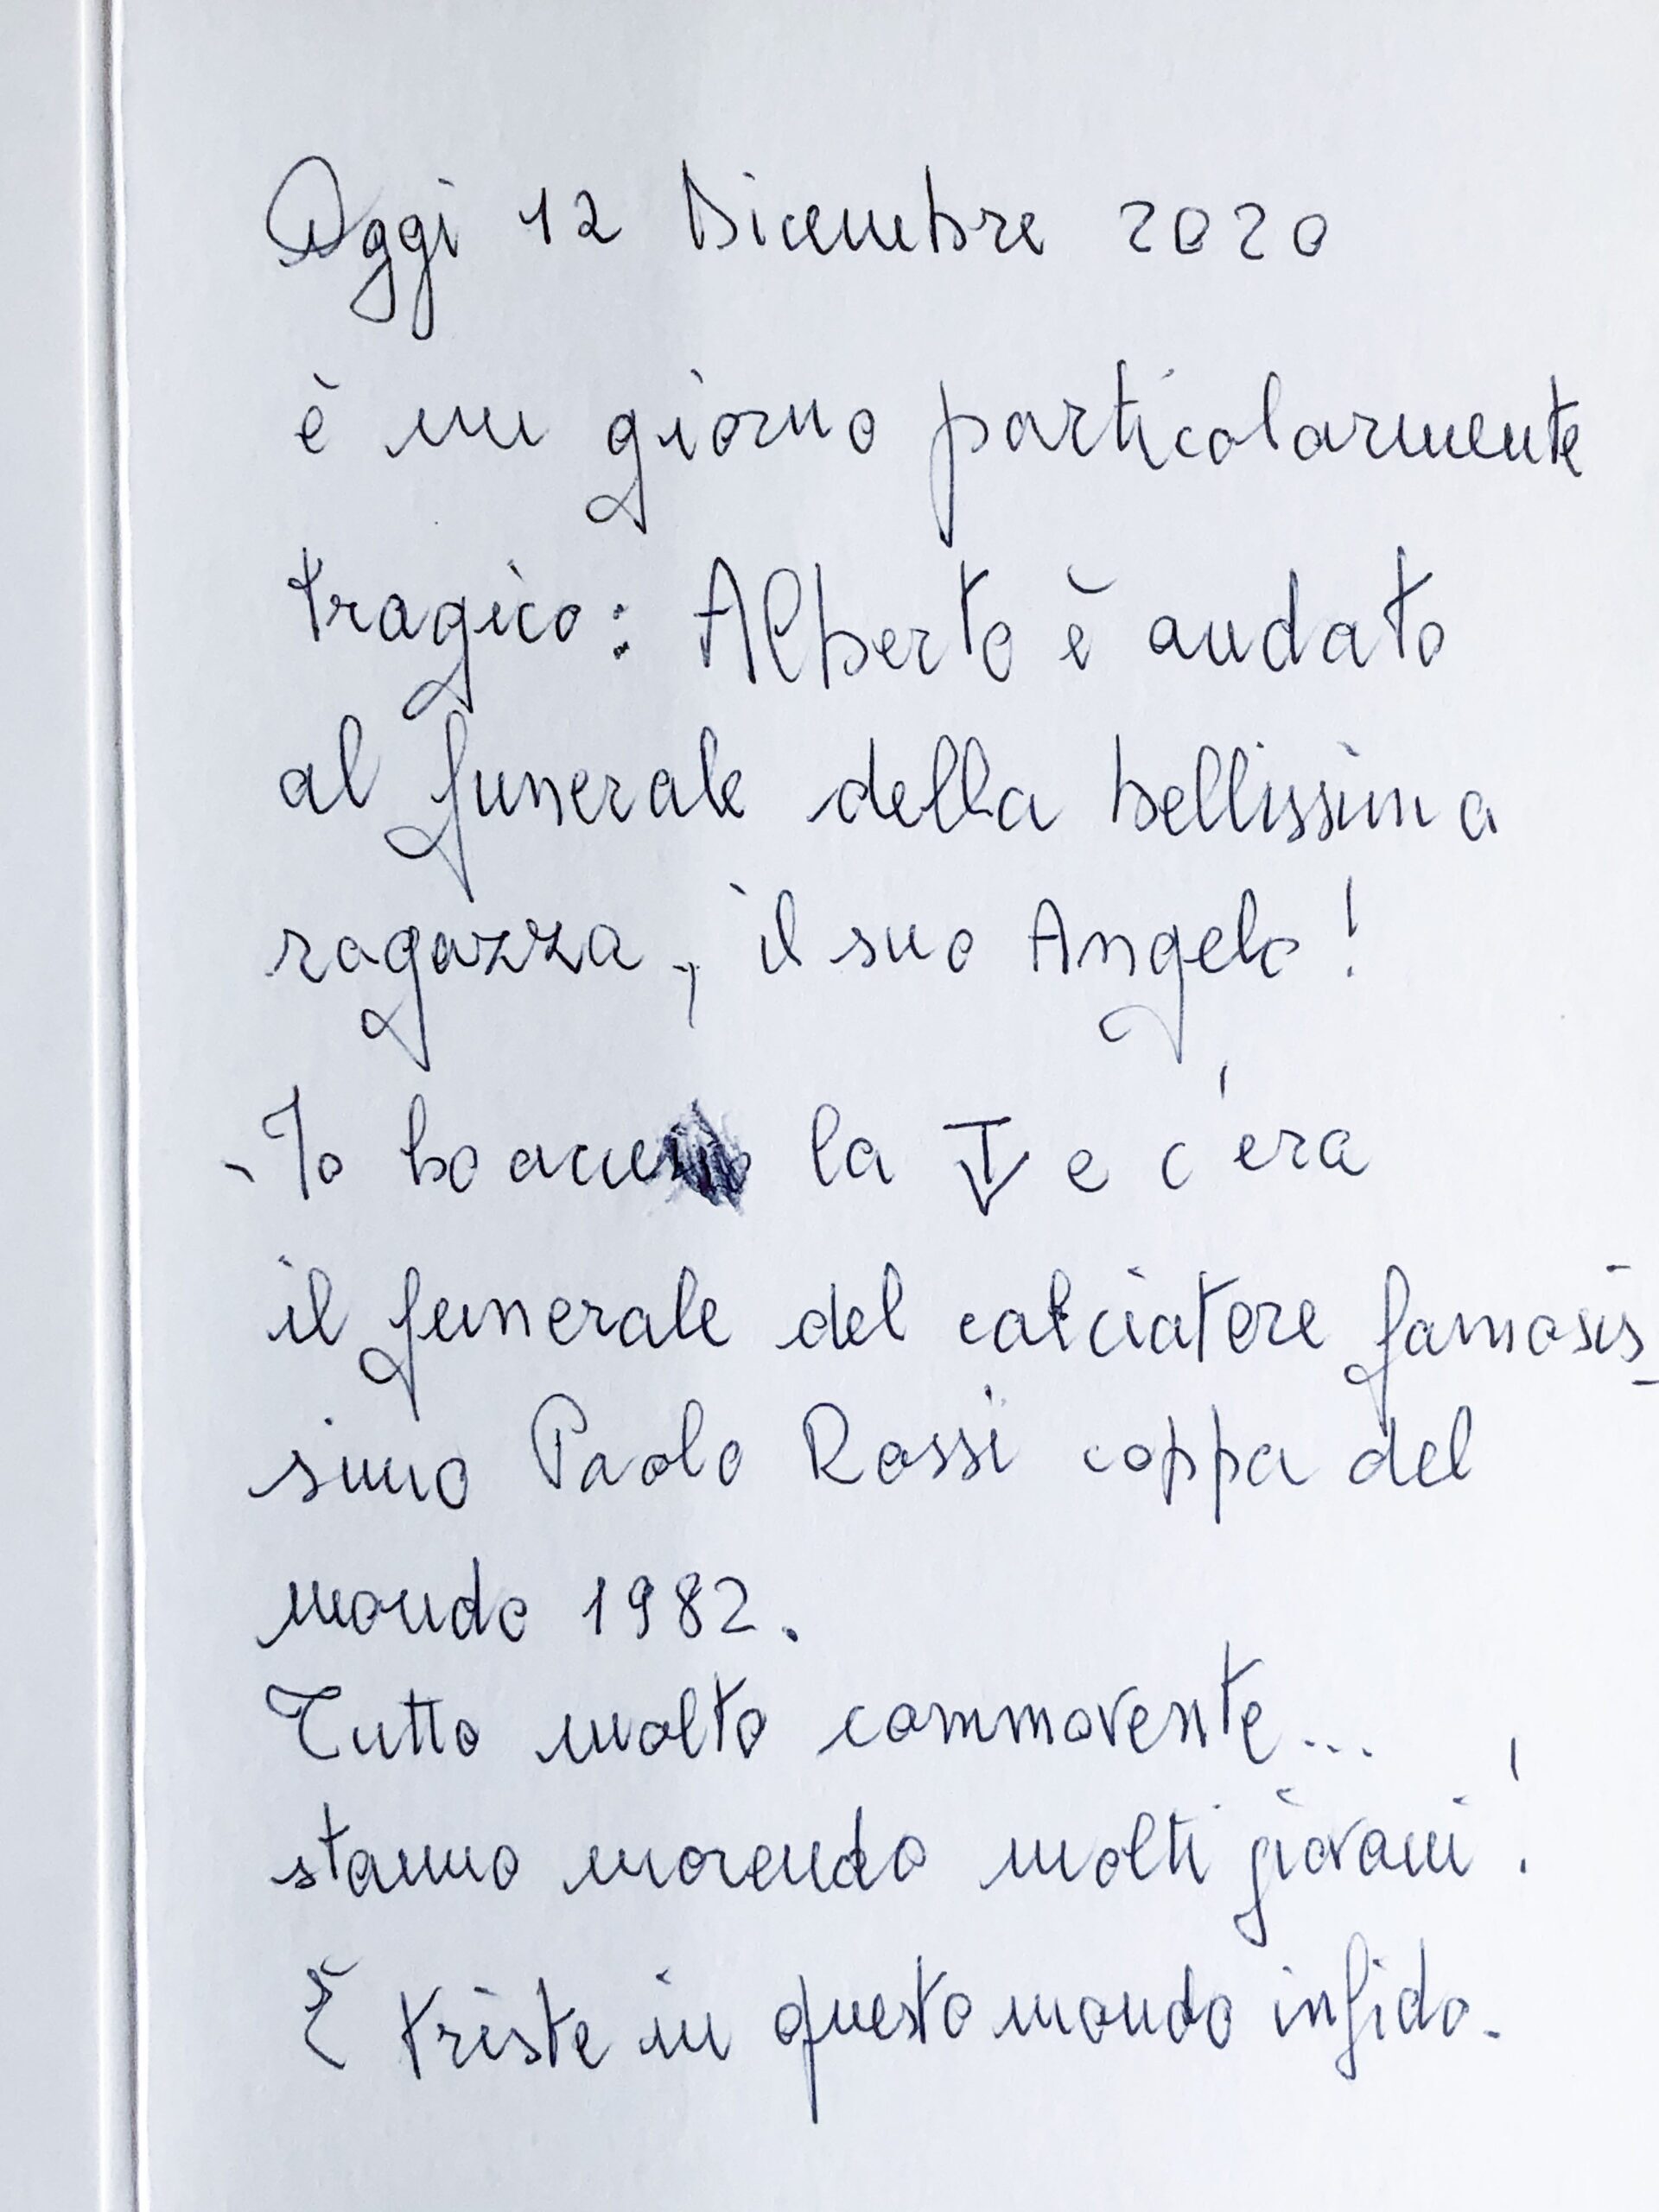 Oggi 12 Dicembre 2020
è un giorno particolarmente
tragico: Alberto è andato
al funerale della bellissima
ragazza, il suo Angelo!
Io ho la TV e c'era
il funerale del calciatore famosis_
simo Paolo Rossi coppa del
mondo 1982.
Tutto molto commovente...
stanno morendo molti giovani!
È triste in questo mondo infido.